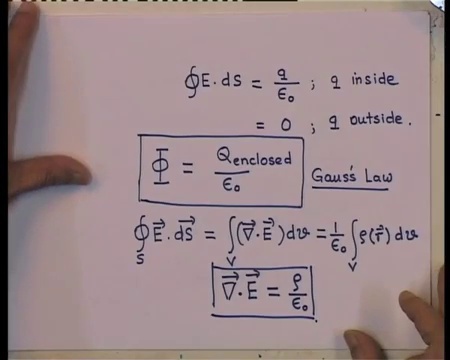 ∮E.dS = q/ε₀ ; q inside
= 0 ; q outside.
Φ = Qenclosed/ε₀
Gauss's Law
∮S E⃗.dS⃗ = ∫V (∇⃗.E⃗)dv = 1/ε₀ ∫V ρ(r⃗) dv
∇⃗.E⃗ = ρ/ε₀